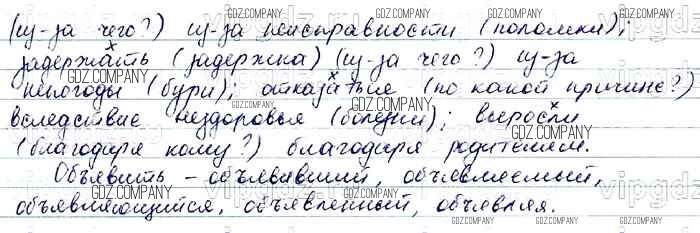 (из-за чего?) из-за неисправности (поломки);
задержать (задержка) (из-за чего?) из-за
непогоды (бури); отказаться (по какой причине?)
вследствие нездоровья (болезни); выросли
(благодаря кому?) благодаря родителям.
Объявить – объявивший, объявляемый,
объявляющийся, объявленный, объявляя.